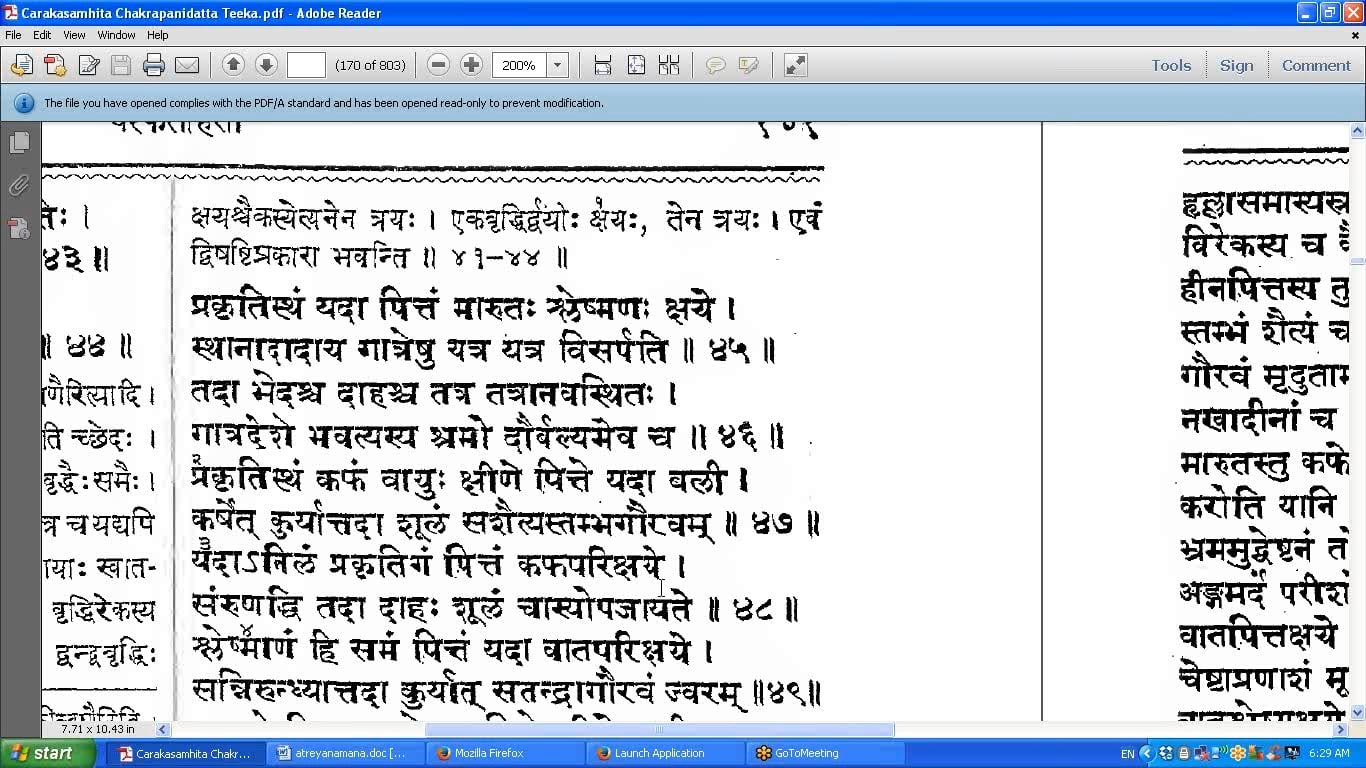 Carakasamhita Chakrapanidatta Teeka.pdf - Adobe Reader
File Edit View Window Help
(170 of 803) 200% Tools Sign Comment
The file you have opened complies with the PDF/A standard and has been opened read-only to prevent modification.
क्षयश्चैकस्येत्यनेन त्रयः । एकवृद्धिर्द्वयोः क्षयः, तेन त्रयः । एवं
द्विषष्टिप्रकारा भवन्ति ॥ ४१–४४ ॥
प्रकृतिस्थं यदा पित्तं मारुतः श्लेष्मणः क्षये ।
स्थानादादाय गात्रेषु यत्र यत्र विसर्पति ॥ ४५ ॥
तदा भेदश्च दाहश्च तत्र तत्रानवस्थितः ।
गात्रदेशे भवत्यस्य श्रमो दौर्बल्यमेव च ॥ ४६ ॥
प्रकृतिस्थं कफं वायुः क्षीणे पित्ते यदा बली ।
कर्षेत् कुर्यात्तदा शूलं सशैत्यस्तम्भगौरवम् ॥ ४७ ॥
यदाऽनिलं प्रकृतिगं पित्तं कफपरिक्षये ।
संरुणद्धि तदा दाहः शूलं चास्योपजायते ॥ ४८ ॥
श्लेष्माणं हि समं पित्तं यदा वातपरिक्षये ।
सन्निरुन्ध्यात्तदा कुर्यात् सतन्द्रागौरवं ज्वरम् ॥४९॥
तिः ।
४३ ॥
॥ ४४ ॥
णैरित्यादि ।
ति च्छेदः ।
वृद्धैः समैः ।
त्र च यद्यपि
याः खात-
वृद्धिरेकस्य
द्वन्द्ववृद्धिः
हृल्लासमास्यस्र
विरेकस्य च वै
हीनपित्तस्य तु
स्तम्भं शैत्यं च
गौरवं मृदुताम
नखादीनां च
मारुतस्तु कफे
करोति यानि
भ्रममुद्वेष्टनं तो
अङ्गमर्दं परीशो
वातपित्तक्षये
चेष्टाप्रणाशं मू
7.71 x 10.43 in
start Carakasamhita Chakr... atreyanamana.doc [... Mozilla Firefox Launch Application GoToMeeting EN 6:29 AM